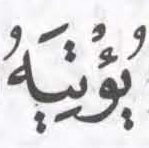 يُؤْتِيَهُ